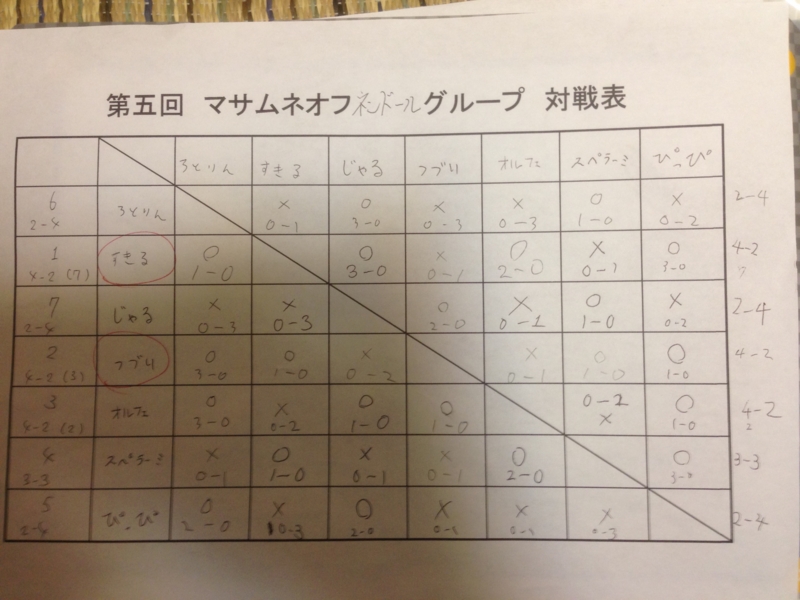 第五回 マサムネオフネンドールグループ 対戦表
ろとりん すきる じゃる つづり オルフェ スペラーミ ぴっぴ
6 × ○ × × ○ × 2-4
2-4 ろとりん 0-1 3-0 0-3 0-3 1-0 0-2
1 すきる ○ ○ × ○ × ○ 4-2
4-2 (7) 1-0 3-0 0-1 2-0 0-1 3-0 7
7 じゃる × × ○ × ○ × 2-4
2-4 0-3 0-3 2-0 0-1 1-0 0-2
2 つづり ○ ○ × × ○ ○ 4-2
4-2 (3) 3-0 1-0 0-2 0-1 1-0 1-0
3 オルフェ ○ × ○ ○ 0-2 ○ 4-2
4-2 (2) 3-0 0-2 1-0 1-0 × 1-0 2
4 スペラーミ × ○ × × ○ ○ 3-3
3-3 0-1 1-0 0-1 0-1 2-0 3-0
5 ぴっぴ ○ × ○ × × × 2-4
2-4 2-0 0-3 2-0 0-1 0-1 0-3